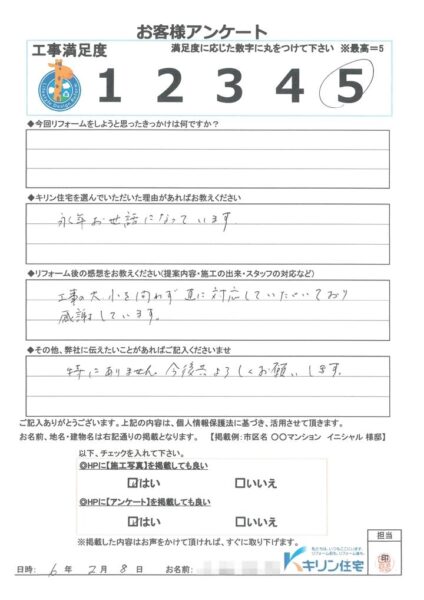 お客様アンケート
工事満足度
満足度に応じた数字に丸をつけて下さい ※最高=5
1 2 3 4 5
◆今回リフォームをしようと思ったきっかけは何ですか?
◆キリン住宅を選んでいただいた理由があればお教えください
永年お世話になっています
◆リフォーム後の感想をお教えください(提案内容・施工の出来・スタッフの対応など)
工事の大小を問わず直に対応していただいており
感謝しています。
◆その他、弊社に伝えたいことがあればご記入くださいませ
特にありません 今後共よろしくお願いします。
ご記入ありがとうございます。上記の内容は、個人情報保護法に基づき、活用させて頂きます。
お名前、地名・建物名は右記通りの掲載となります。 【掲載例:市区名 〇〇マンション イニシャル 様邸】
以下、チェックを入れて下さい。
◎HPに【施工写真】を掲載しても良い
☑はい □いいえ
◎HPに【アンケート】を掲載しても良い
☑はい □いいえ
※掲載した内容はお声をかけて頂ければ、すぐに取り下げます。
担当
キリン住宅
印
日時: 6 年 2 月 8 日 お名前: